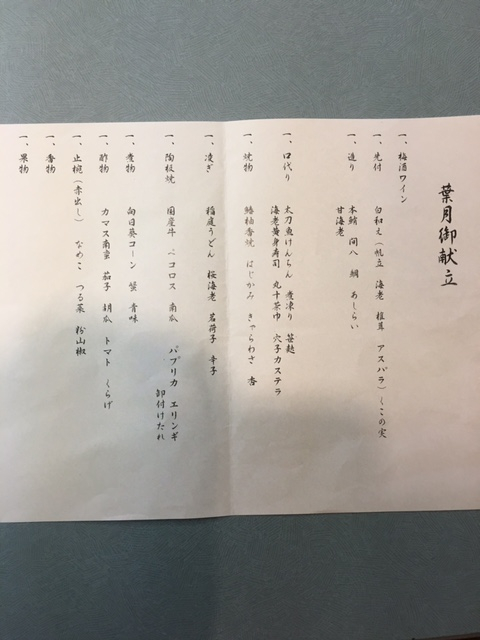 葉月御献立
一、梅酒ワイン
一、先付 白和え(帆立 海老 椎茸 アスパラ)くこの実
一、造り 本鮪 間八 鯛 あしらい
甘海老
一、口代り 太刀魚けんちん 煮凍り 笹麩
海老黄身寿司 丸十茶巾 穴子カステラ
一、焼物 鰆柚香焼 はじかみ きゃらわさ 杏
一、凌ぎ 稲庭うどん 桜海老 茗荷子 辛子
一、陶板焼 国産牛 ペコロス 南瓜 パプリカ エリンギ
卸付けたれ
一、煮物 向日葵コーン 蟹 青味
一、酢物 カマス南蛮 茄子 胡瓜 トマト くらげ
一、止椀(赤出し) なめこ つる菜 粉山椒
一、香物
一、果物